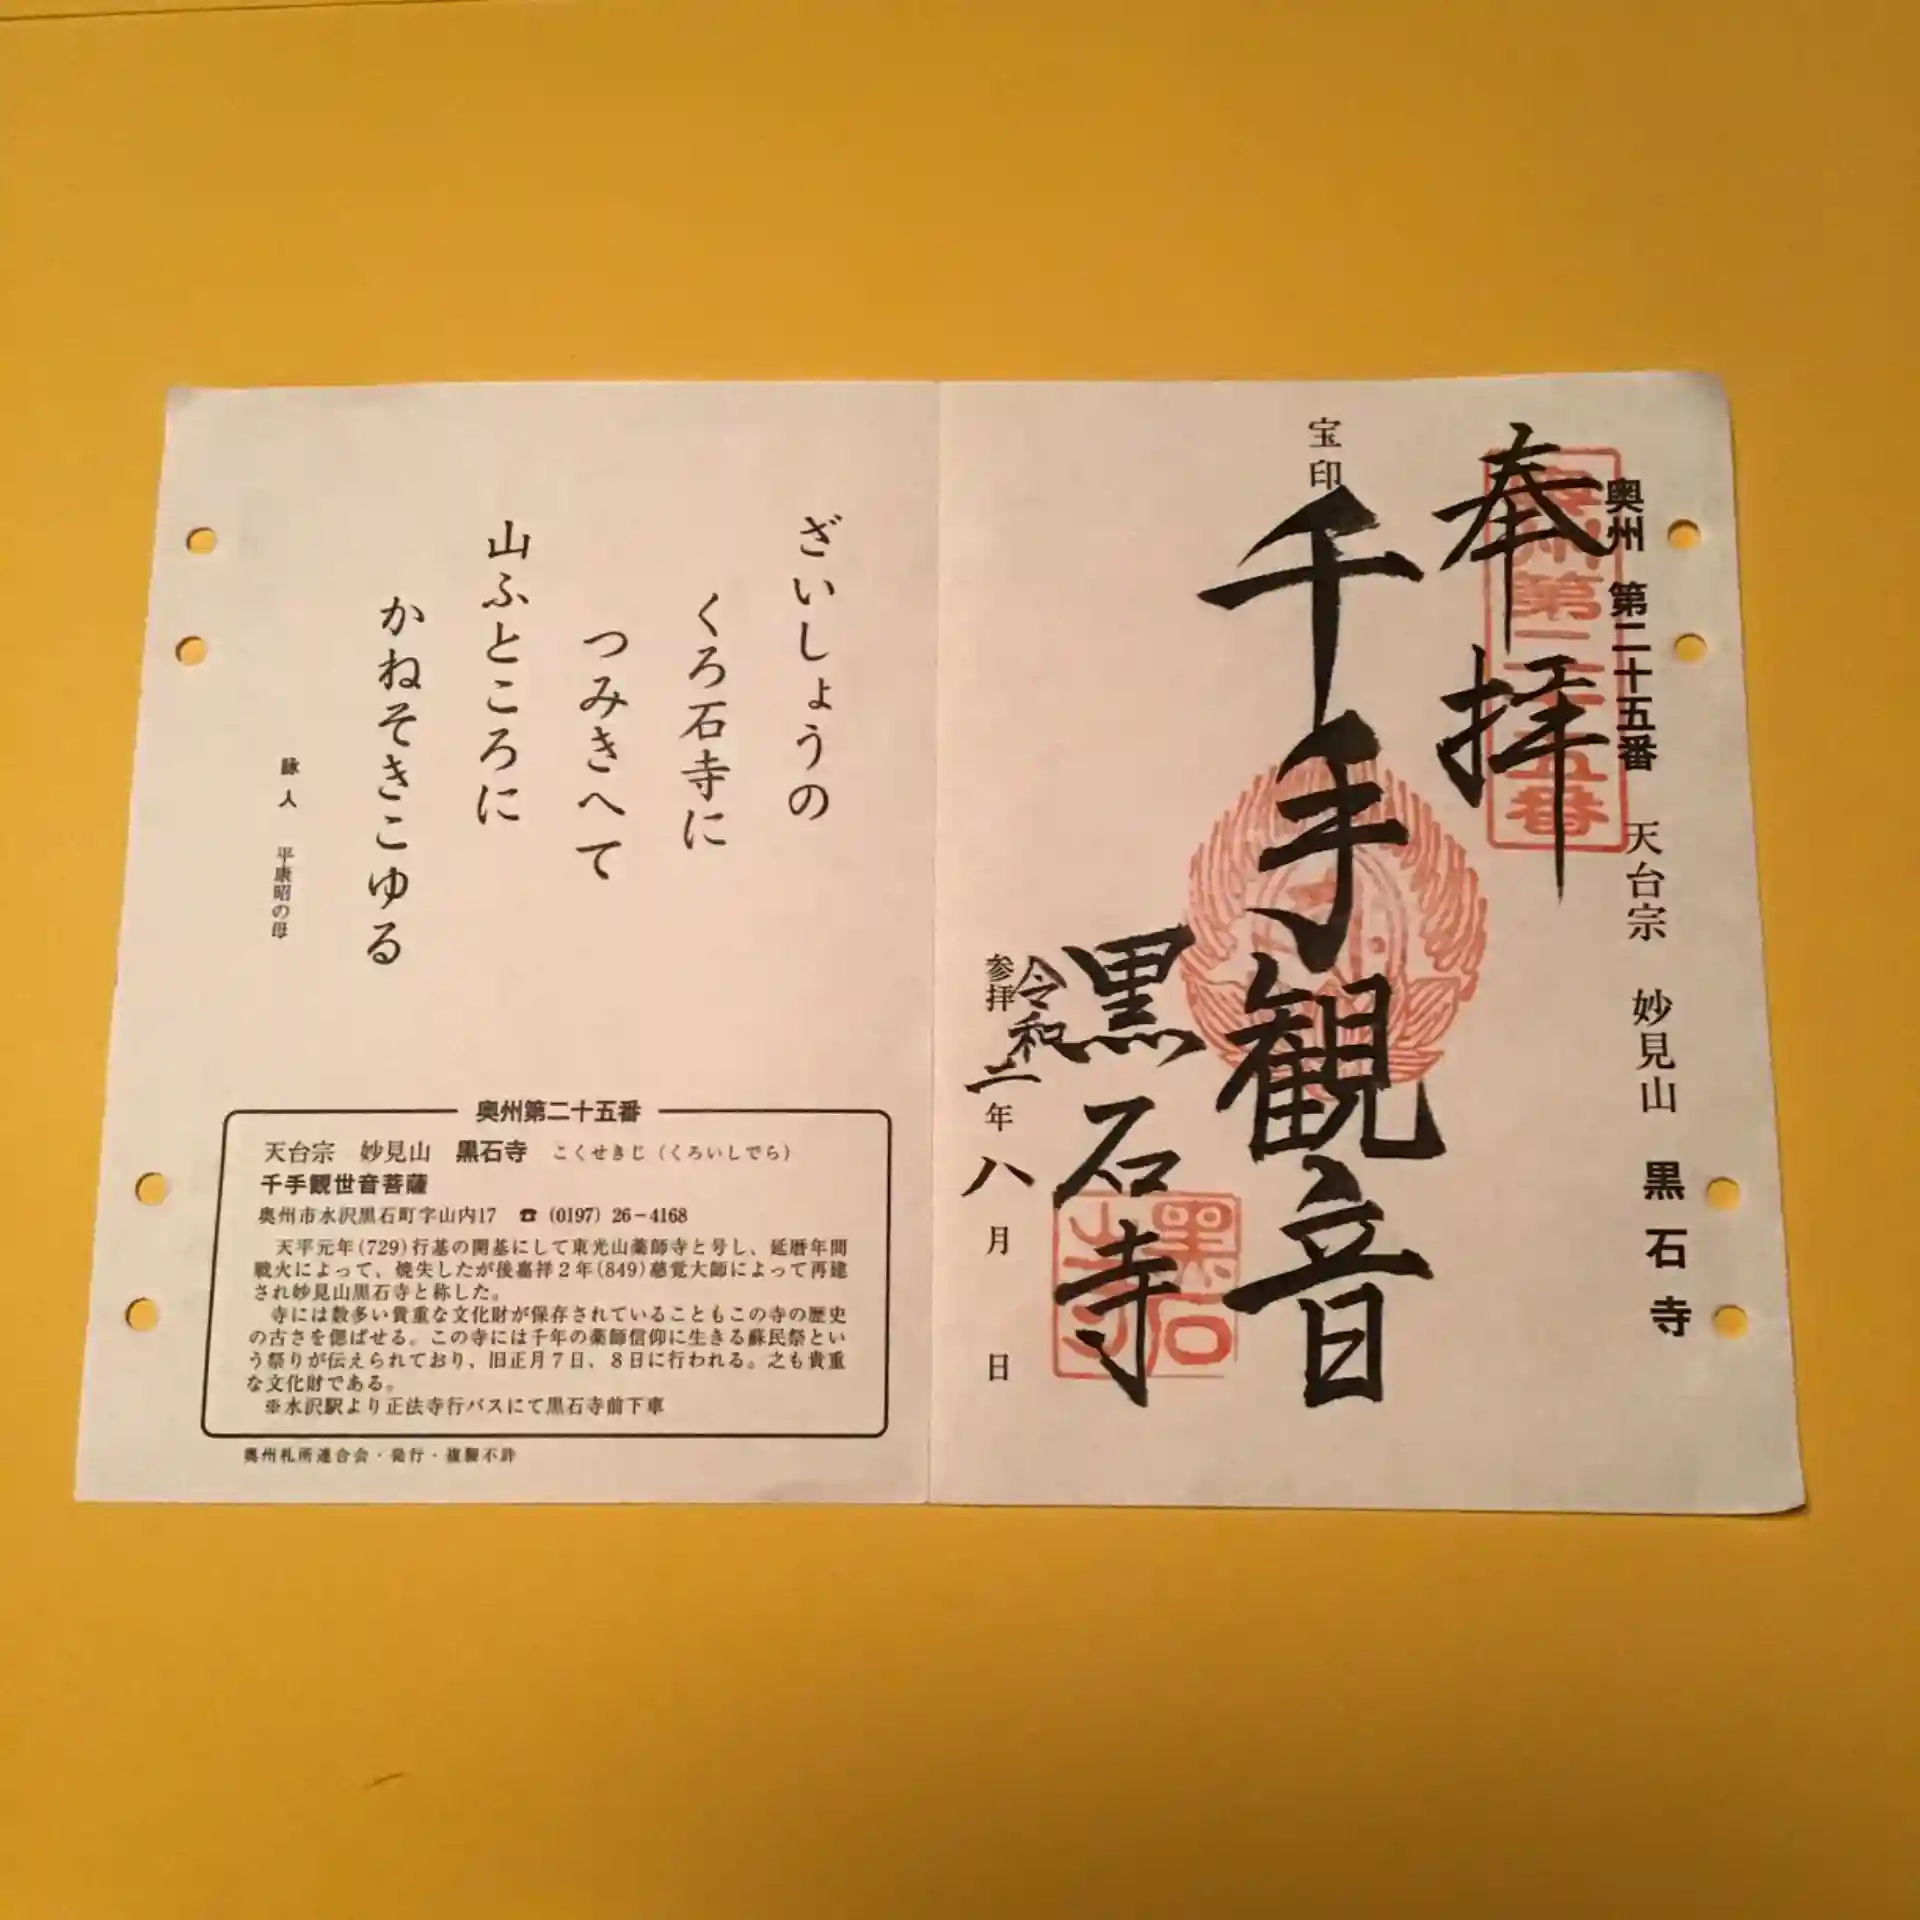 奥州 第二十五番 天台宗 妙見山 黒石寺
奥州第二十五番
奉拝
宝印
千手観音
黒石寺
黒石寺
参拝 令和二年八月 日
ざいしょうの
くろ石寺に
つみきへて
山ふところに
かねそきこゆる
詠人 平康昭の母
奥州第二十五番
天台宗 妙見山 黒石寺 こくせきじ(くろいしでら)
千手観世音菩薩
奥州市水沢黒石町字山内17 ☎ (0197) 26-4168
天平元年(729)行基の開基にして東光山薬師寺と号し、延暦年間
戦火によって、焼失したが後嘉祥2年(849)慈覚大師によって再建
され妙見山黒石寺と称した。
寺には数多い貴重な文化財が保存されていることもこの寺の歴史
の古さを偲ばせる。この寺には千年の薬師信仰に生きる蘇民祭とい
う祭りが伝えられており、旧正月7日、8日に行われる。之も貴重
な文化財である。
※水沢駅より正法寺行バスにて黒石寺前下車
奥州札所連合会・発行・複製不許